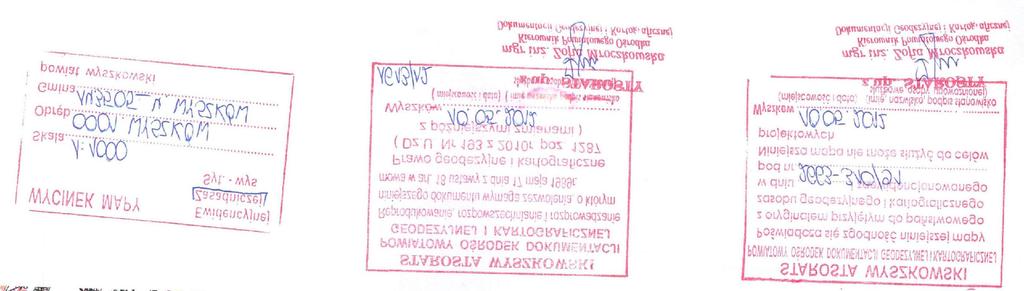 WYCINEK MAPY
Ewidencyjnej
Zasadniczej
Syt. - wys
Skala 1:1000
Obręb 0001 WYSZKÓW
Gmina 143505_4 WYSZKÓW
powiat wyszkowski
STAROSTA WYSZKOWSKI
POWIATOWY OŚRODEK DOKUMENTACJI
GEODEZYJNEJ I KARTOGRAFICZNEJ
Reprodukowanie, rozpowszechnianie i rozprowadzanie
niniejszego dokumentu wymaga zezwolenia, o którym
mowa w art. 18 ustawy z dnia 17 maja 1989r.
Prawo geodezyjne i kartograficzne
( Dz U Nr 193 z 2010r. poz. 1287
z późniejszymi zmianami )
Wyszków 10.05.2012
( miejscowość i data )
1613/12
z up. STAROSTY
mgr inż. Zofia Mroczkowska
Kierownik Powiatowego Ośrodka
Dokumentacji Geodezyjnej i Kartograficznej
STAROSTA WYSZKOWSKI
POWIATOWY OŚRODEK DOKUMENTACJI GEODEZYJNEJ I KARTOGRAFICZNEJ
Poświadcza się zgodność niniejszej mapy
z oryginałem przyjętym do państwowego
zasobu geodezyjnego i kartograficznego
w dniu zaewidencjonowanego
pod nr 2663-310/91
Niniejsza mapa nie może służyć do celów
projektowych
Wyszków 10.05.2012
(miejscowość i data) (imię, nazwisko, podpis stanowisko
służbowe osoby upoważnionej)
z up. STAROSTY
mgr inż. Zofia Mroczkowska
Kierownik Powiatowego Ośrodka
Dokumentacji Geodezyjnej i Kartograficznej